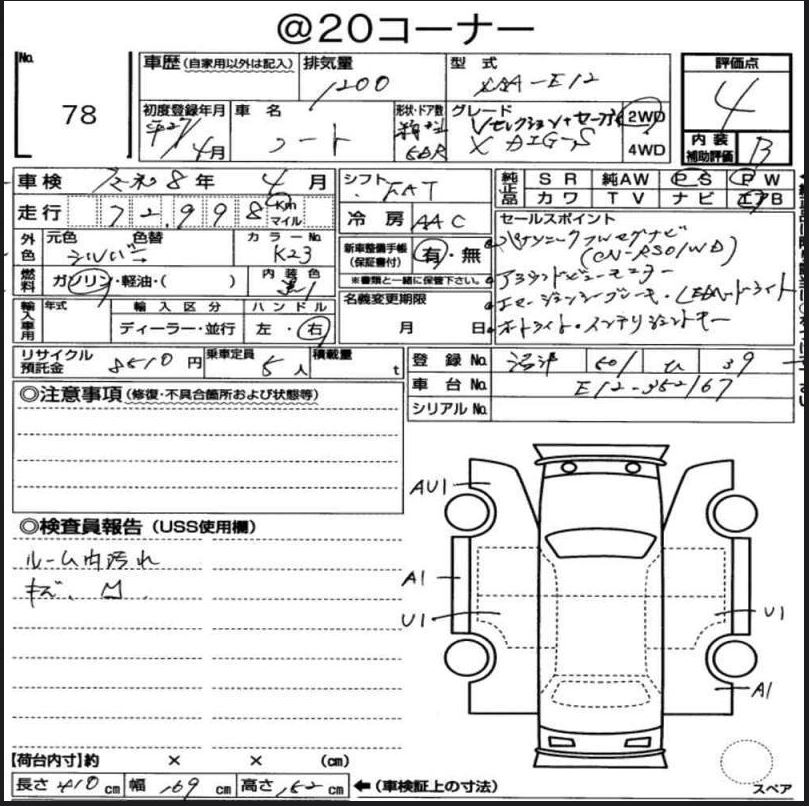 @20コーナー
No.
78
車歴(自家用以外は記入)
排気量
1200
型式
DBA-E12
評価点
4
初度登録年月
平27
4月
車名
ノート
形状・ドア数
5DR
グレード
Vセレクション+セーフティ
X DIG-S
2WD
4WD
内装
補助評価
B
車検
令和8年
4月
シフト
FAT
純正品
SR
純AW
PS
PW
カワ
TV
ナビ
エアB
走行
72,998
Km
マイル
冷房
AAC
セールスポイント
パナソニックフルセグナビ
(CN-RS01WD)
アラウンドビューモニター
エマージェンシーブレーキ・LEDヘッドライト
オートライト・インテリジェントキー
外色
元色
シルバー
色替
カラーNo.
K23
新車整備手帳
(保証書付)
有・無
※書類と一緒に保管下さい。
燃料
ガソリン・軽油・( )
内装色
名義変更期限
月 日
輸入車用
年式
輸入区分
ディーラー・並行
ハンドル
左・右
リサイクル
預託金
8510円
乗車定員
5人
積載量
t
登録No.
沼津
501
ひ
39
車台No.
E12-352167
シリアルNo.
◎注意事項(修復・不具合箇所および状態等)
◎検査員報告(USS使用欄)
ルーム内汚れ
キズ、凹
AU1
A1
U1
U1
A1
【荷台内寸】約 × × (cm)
長さ410cm
幅169cm
高さ152cm
←(車検証上の寸法)
スペア